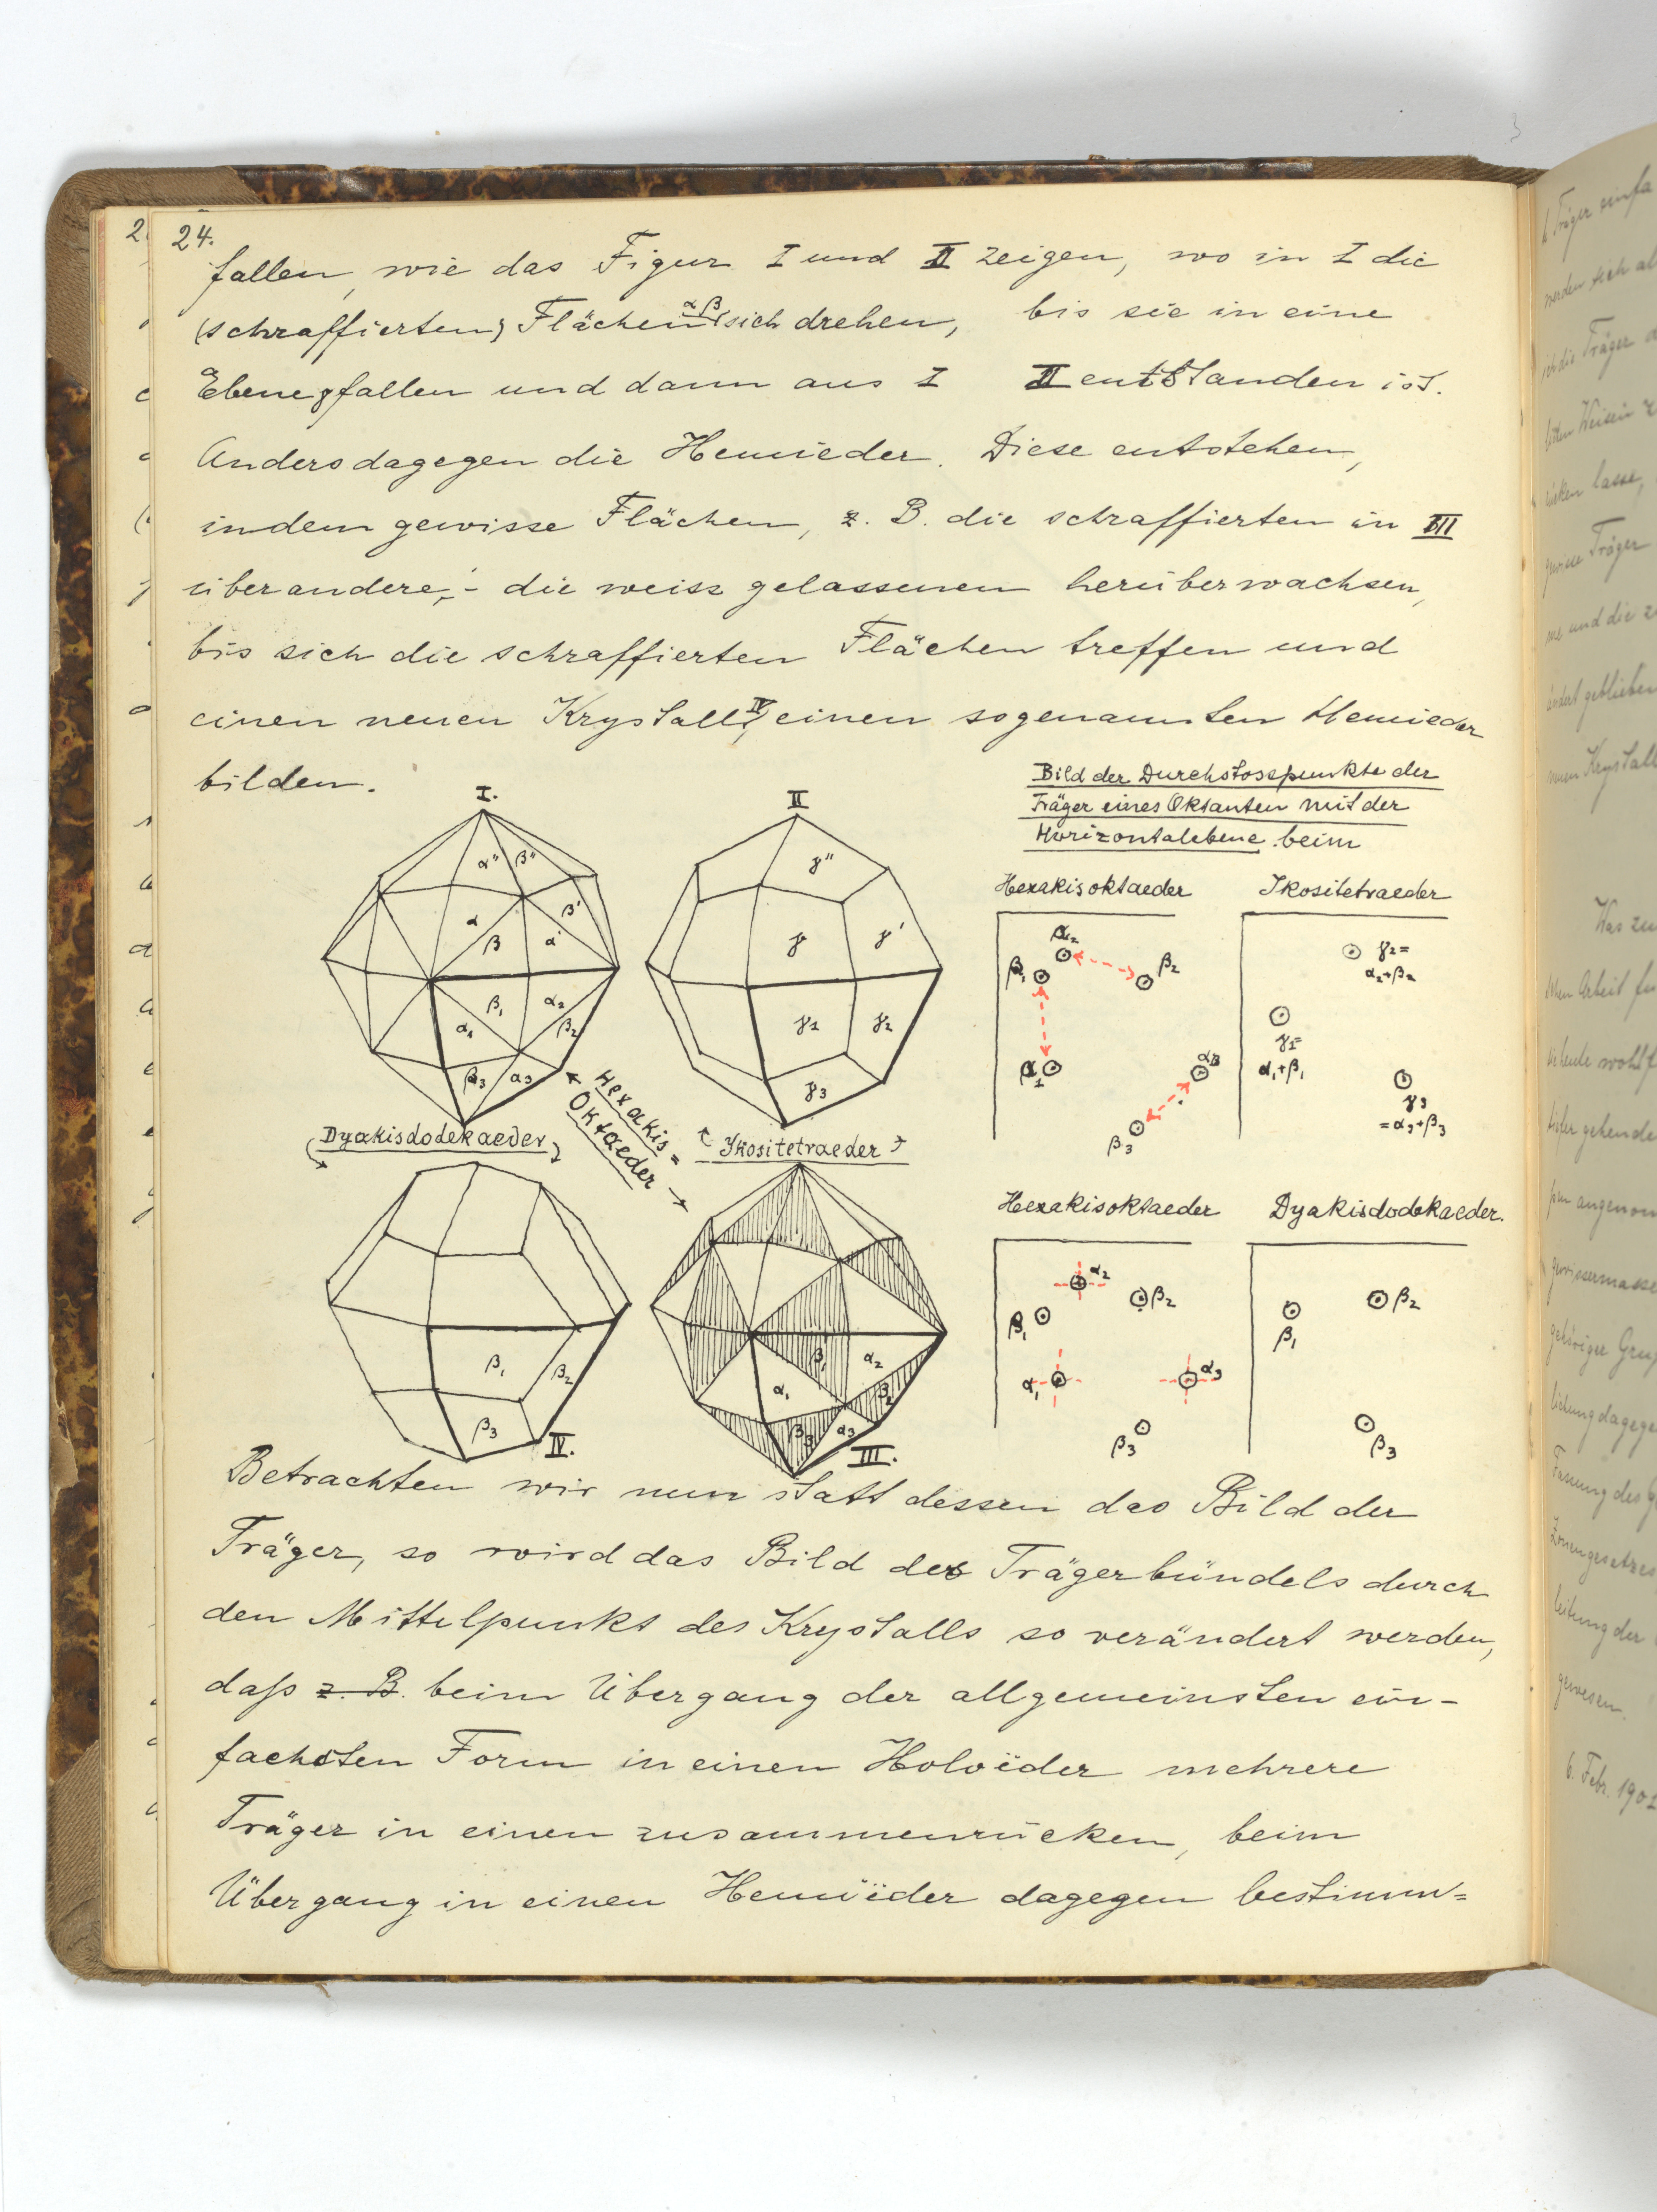 24.
fallen, wie das Figur I und II zeigen, wo in I die
(schraffierten) Flächen α β sich drehen, bis sie in eine
Ebene γ fallen und dann aus I II entstanden ist.
Anders dagegen die Hemieder. Diese entstehen,
indem gewisse Flächen, z. B. die schraffierten in III
über andere, - die weiss gelassenen herüberwachsen,
bis sich die schraffierten Flächen treffen und
einen neuen Krystall IV, einen sogenannten Hemieder
bilden.
Bild der Durchstosspunkte der
Träger eines Oktanten mit der
Horizontalebene beim
I.
α" β"
α β'
β α'
β₁ α₂
α₁ β₂
β₃ α₃
II
γ"
γ γ'
γ₁ γ₂
γ₃
Hexakisoktaeder
α₂
β₁ β₂
α₁ α₃
β₃
Ikositetraeder
γ₂=
α₂+β₂
γ₁=
α₁+β₁
γ₃
=α₃+β₃
Hexakis=
Oktaeder
Dyakisdodekaeder
Ikositetraeder
β₁ β₂
β₃
IV.
β₁ α₂
α₁ β₂
β₃ α₃
III.
Hexakisoktaeder
α₂
β₁ β₂
α₁ α₃
β₃
Dyakisdodekaeder.
β₁ β₂
β₃
Betrachten wir nun statt dessen das Bild der
Träger, so wird das Bild des Trägerbündels durch
den Mittelpunkt des Krystalls so verändert werden,
daß z. B. beim Übergang der allgemeinsten ein-
fachsten Form in einen Holoëder mehrere
Träger in einen zusammenrücken, beim
Übergang in einen Hemiëder dagegen bestimm=
6. Febr.